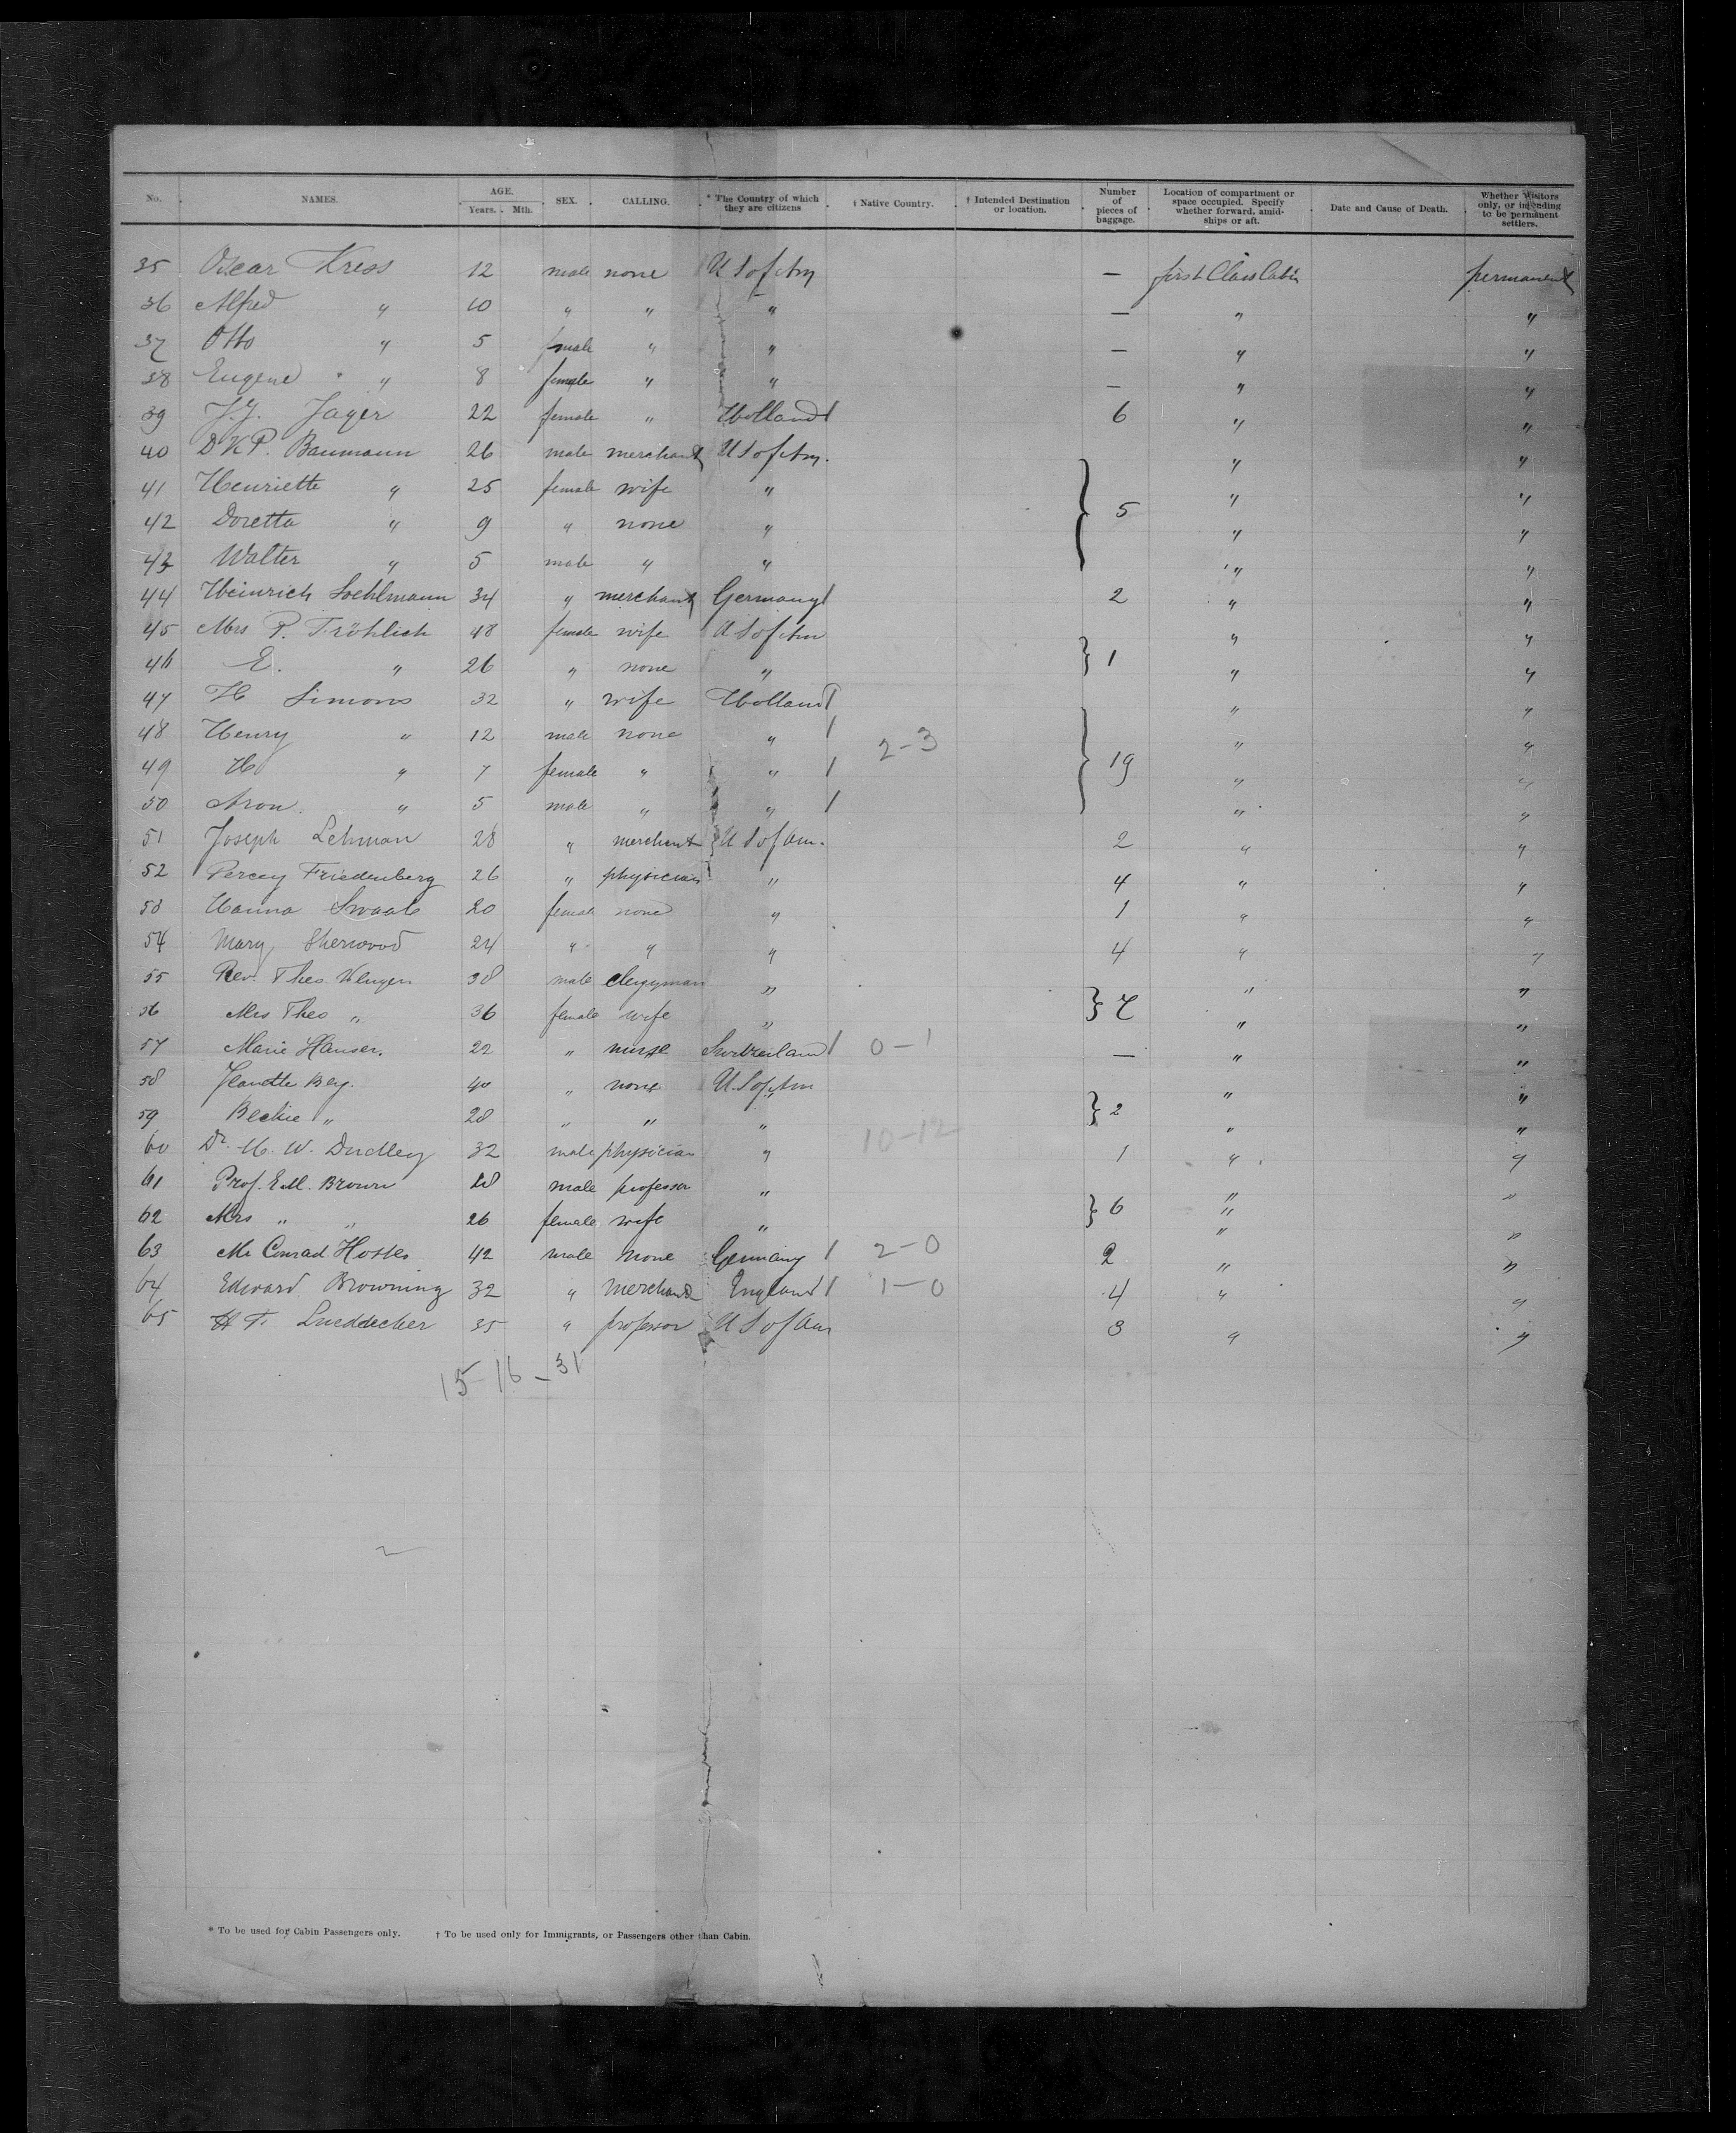 No. NAMES. AGE. Years. Mth. SEX. CALLING. * The Country of which they are citizens † Native Country. † Intended Destination or location. Number of pieces of baggage. Location of compartment or space occupied. Specify whether forward, amidships or aft. Date and Cause of Death. Whether Visitors only, or intending to be permanent settlers.
35 Oscar Kress 12 male none U S of Am — first Class Cabin permanent
36 Alfred " 10 " " " — " "
37 Otto " 5 female " " — " "
38 Eugene " 8 female " " — " "
39 J. J. Jager 22 female " Holland 6 " "
40 D K P. Baumann 26 male merchant U S of Am. " "
41 Henriette " 25 female wife " 5 " "
42 Doretta " 9 " none " " "
43 Walter " 5 male " " " "
44 Heinrich Soehlmann 34 " merchant Germany 2 " "
45 Mrs P. Fröhlich 48 female wife U S of Am " "
46 E. " 26 " none " 1 " "
47 H Simons 32 " wife Holland " "
48 Henry " 12 male none " 2-3 " "
49 H " 7 female " " 19 " "
50 Aron. " 5 male " " " "
51 Joseph Lehman 28 " merchant U S of Am. 2 " "
52 Percey Friedenberg 26 " physician " 4 " "
53 Hanna Swaab 20 female none " 1 " "
54 Mary Sherwood 24 " " " 4 " "
55 Rev. Theo Wengen 38 male clergyman " " "
56 Mrs Theo " 36 female wife " 7 " "
57 Marie Hauser. 22 " nurse Switzerland 0-1 — " "
58 Jeanette Bey. 40 " none U. S of Am " "
59 Beckie " 28 " " " 2 " "
60 Dr. M. W. Dudley 32 male physician " 10-12 1 " "
61 Prof. E M. Brown 28 male professor " " "
62 Mrs " " 26 female wife " 6 " "
63 Mr Conrad Hostes 42 male none Germany 2-0 2 " "
64 Edward Browning 32 " Merchand England 1-0 4 " "
65 H F. Lueddecker 35 " professor U S of Am 3 " "
15-16-31
* To be used for Cabin Passengers only. † To be used only for Immigrants, or Passengers other than Cabin.